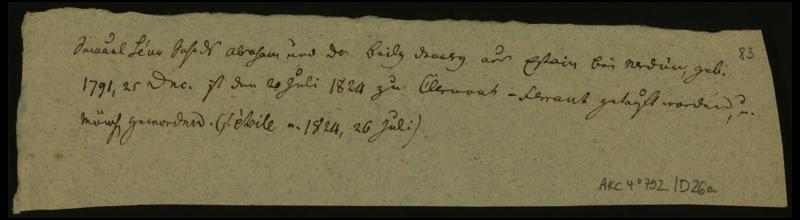 83
Samuel Levi Sohn ds Abraham und der Beily aus Estain bei Verdün, geb.
1791, 25 Dec. ist den 20 Juli 1824 zu Clermont-Ferrant getauft worden, u.
Mönch geworden. (s. étoile n. 1824, 26 Juli)
ARC 4° 792 / D26a